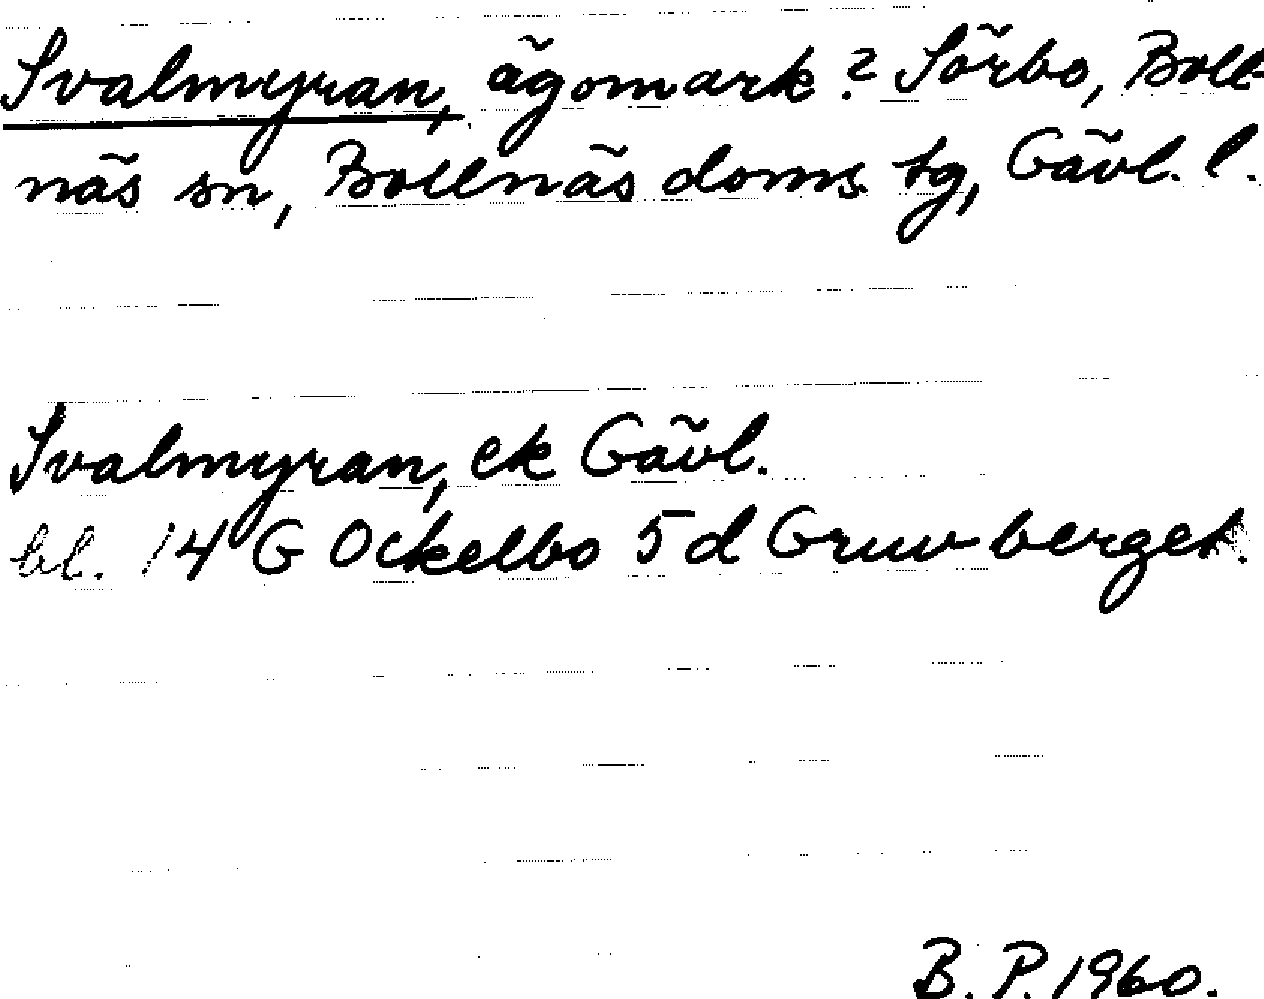 Svalmyran, ägomark? Sörbo, Boll-
näs sn, Bollnäs doms. tg, Gävl. l.
Svalmyran, ek Gävl.
bl. 14 G Ockelbo 5 d Gruvberget.
B. P. 1960.